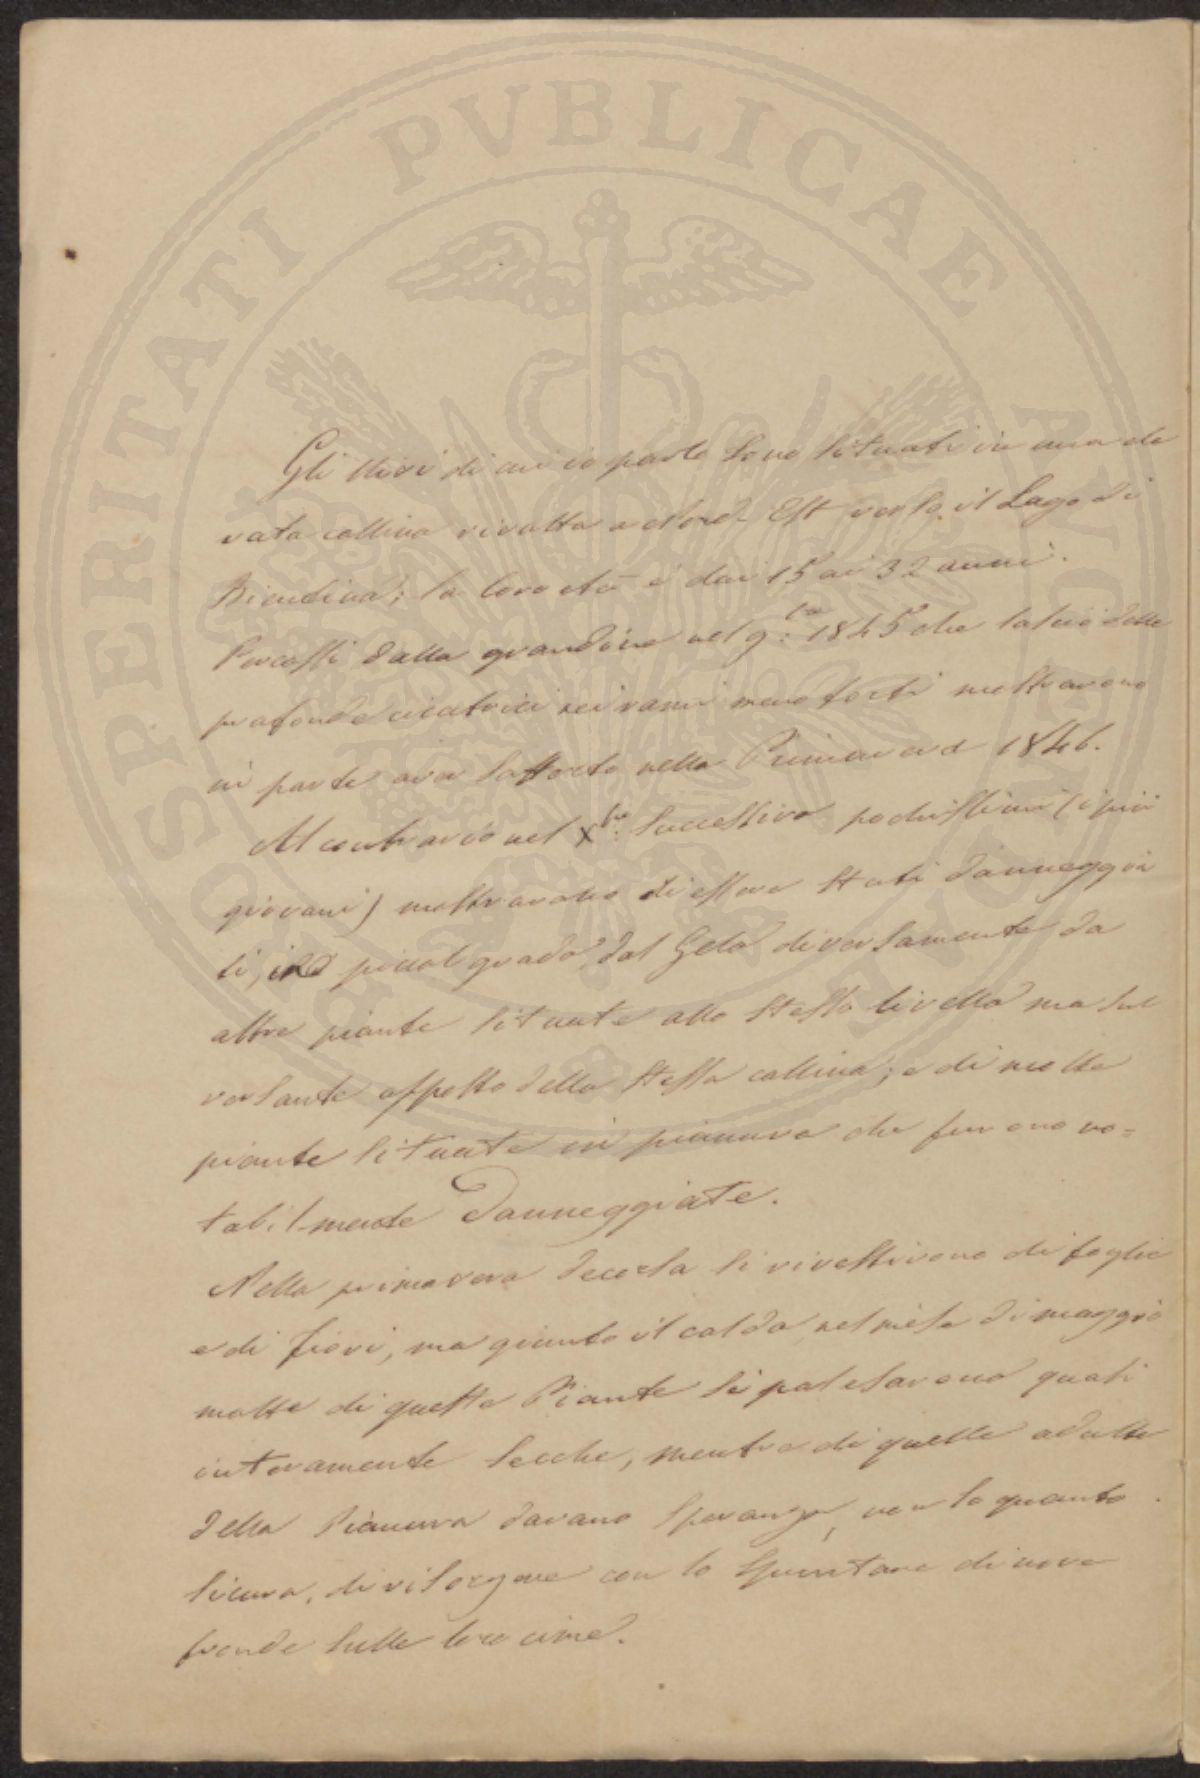 PROSPERITATI PVBLICAE AVGENDAE
Gli Ulivi di cui io parlo sono situati in una ele
vata collina rivolta a Nord-Est verso il Lago di
Bientina; la loro età è dai 15 ai 32 anni.
Percossi dalla grandine nel 9:bre 1845 che lasciò delle
profonde cicatrici nei rami meno forti mostrarono
in parte aver sofferto nella Primavera d 1846.
Al contrario nel Xbre: successivo pochissimi (i più
giovani) mostrarono di essere stati danneggia
ti, in piccol grado, dal Gelo diversamente da
altre piante situate allo stesso livello ma sul
versante opposto della stessa collina; e di molte
piante situate in pianura che furono no=
tabilmente danneggiate.
Nella primavera decorsa si rivestirono di foglie
e di fiori, ma giunto il caldo nel mese di maggio
molte di queste Piante si palesarono quasi
interamente secche, mentre di quelle adulte
della Pianura davano speranza, non so quanto
sicura, di risorgere con lo spuntare di nuove
fronde sulle loro cime.